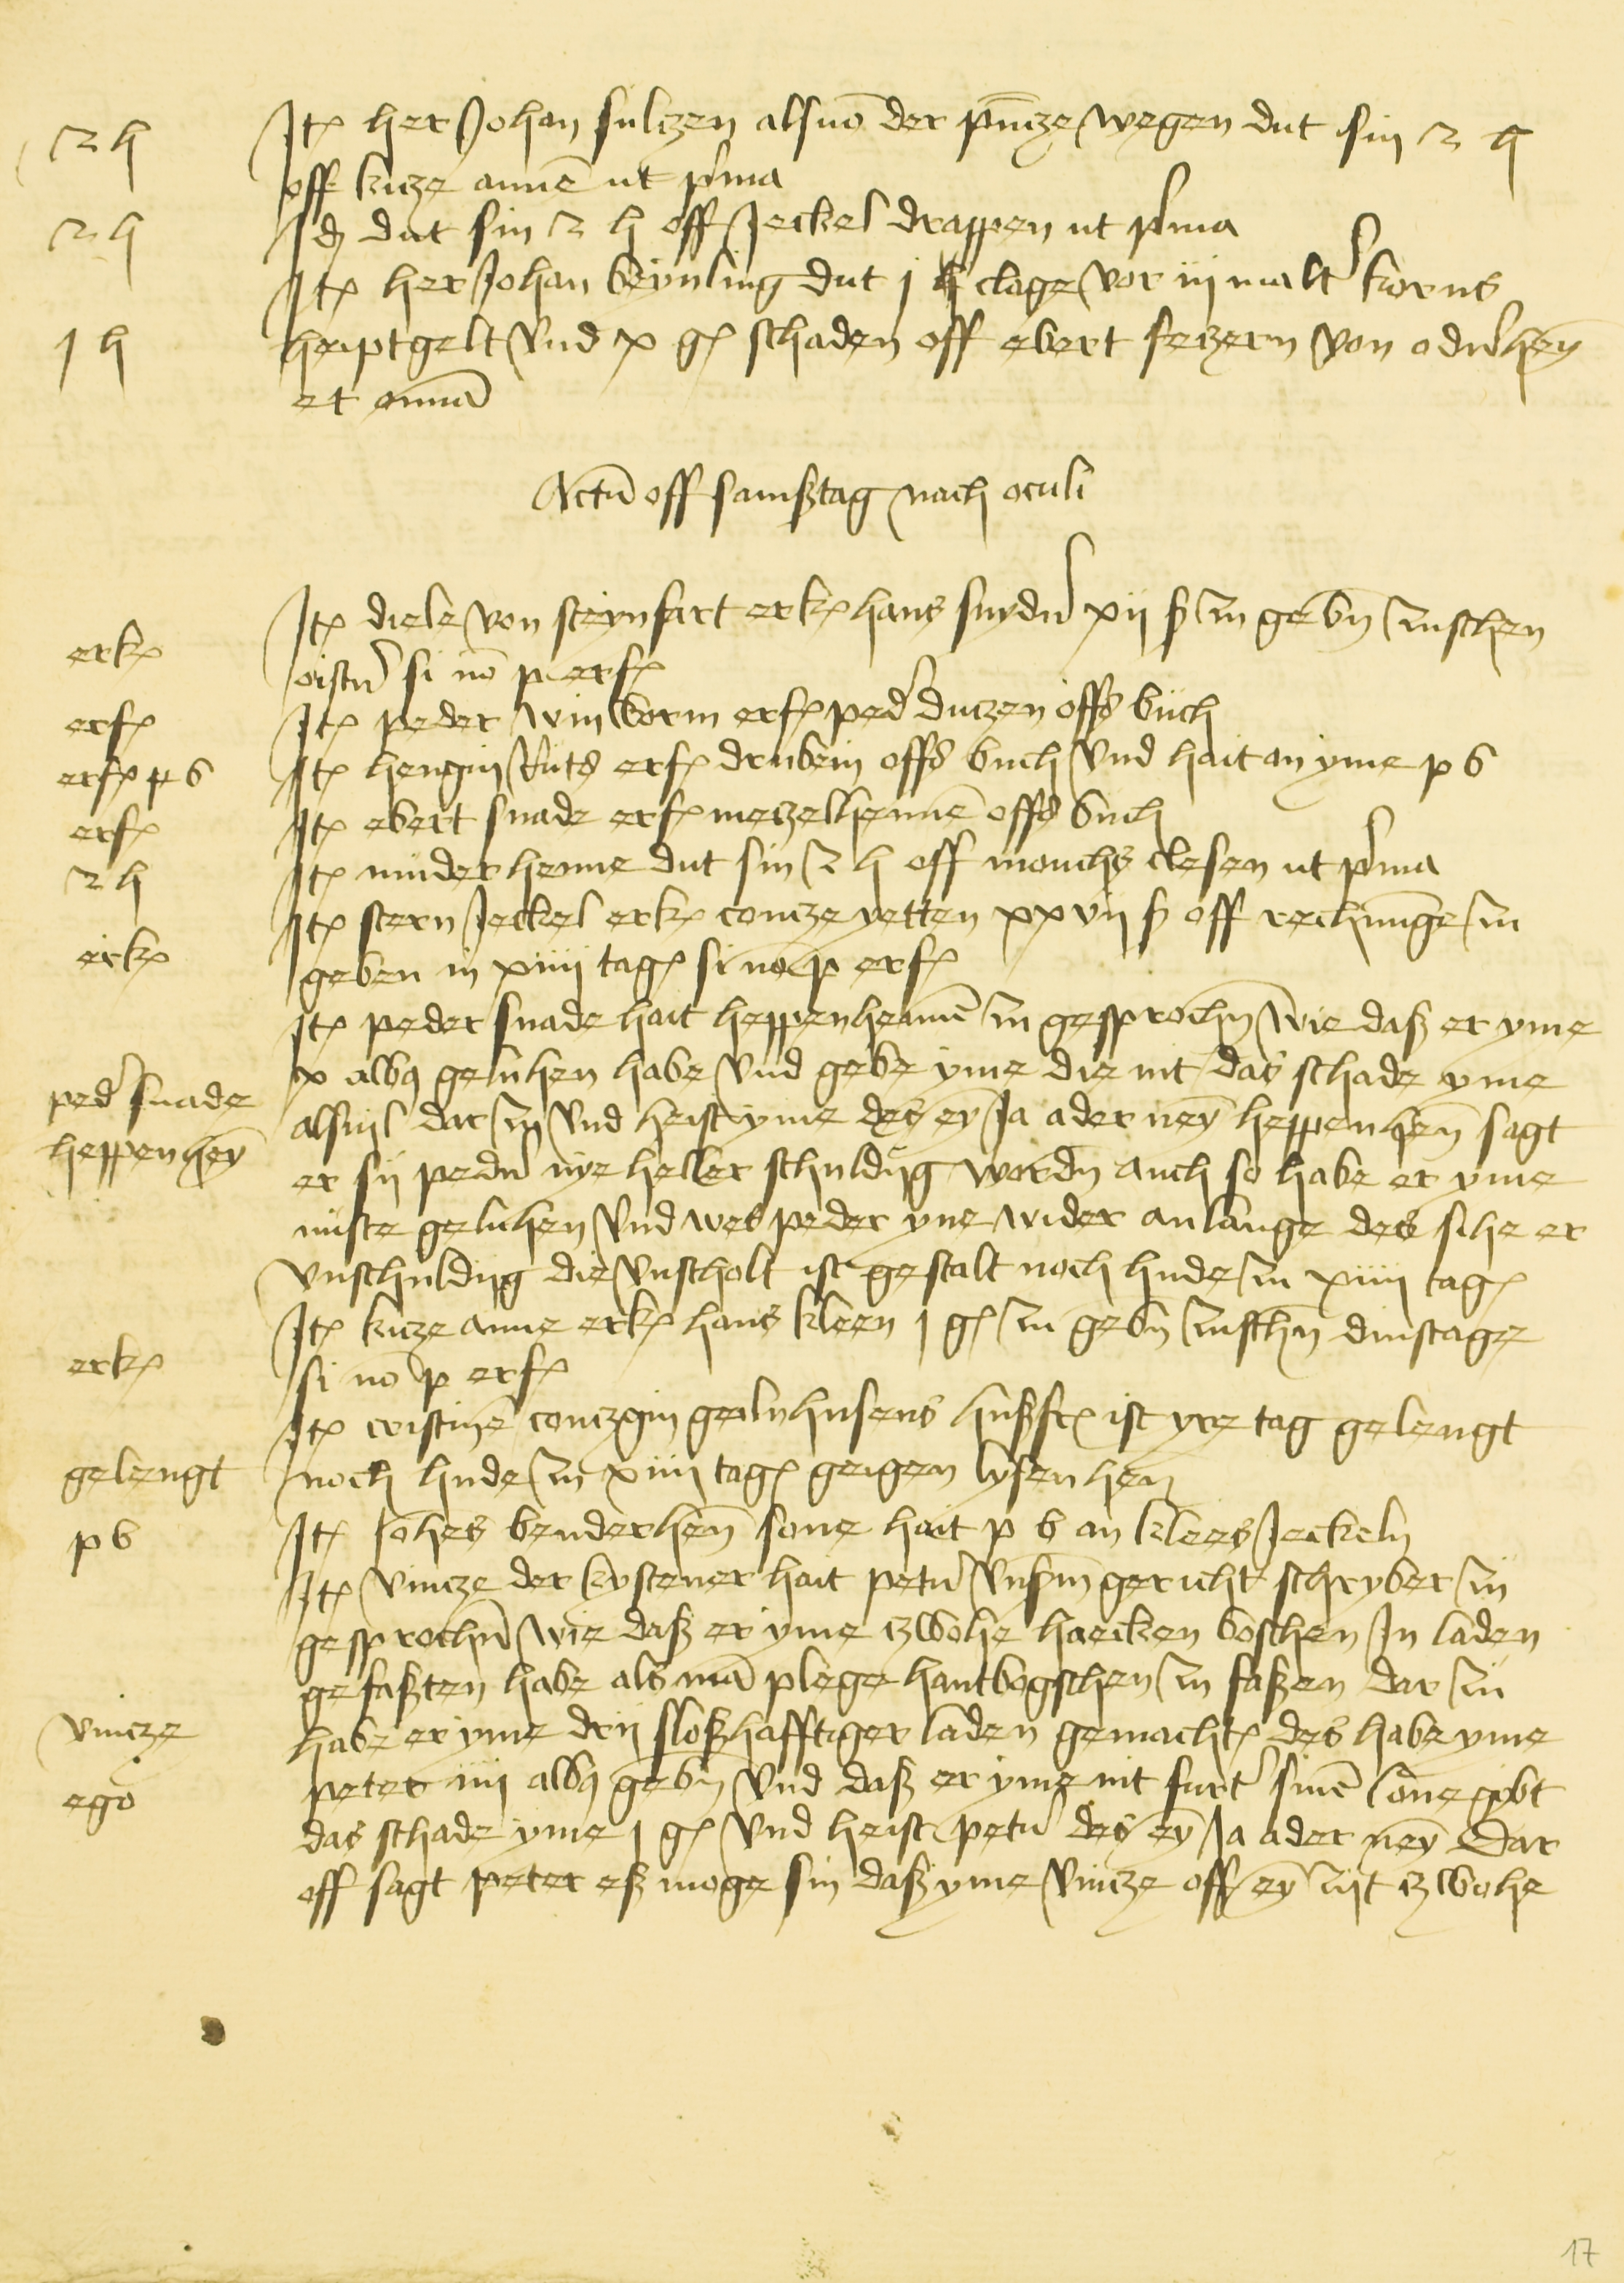 2 h
Itꝫ her Johan sulczen als vō der p̄ntze wegen dut sin 2 h
off kicze annē ut pͥma
2 h
Idē dut sin 2 h off Jeckel drappen ut pͥma
Itꝫ her Johan beynling dut j h clage vor iij malt̕ korns
1 h
heiptgelt vnd x gꝫ schaden off ebert feczern von odūhey̅
et om̄ia
Actū off samßtag nach oculi
Itꝫ diele von steynfart erkꝫ hans snyd̕ xij ß zu geb̄n zuschen
erkꝫ
oistn̄ si nō p erfꝫ
erfꝫ
Itꝫ peder winworm erfꝫ ped̕ duczen offs buch
erfꝫ p b
Itꝫ hengin ruts erfꝫ drubein offs buch vnd hait an yme p b
erfꝫ
Itꝫ ebert snade erfꝫ meczelhennē offs buch
2 h
Itꝫ nuderhenne dut sin 2 h off monchs clesen ut pͥma
Itꝫ stern Jeckel erkꝫ concze yetten xxvij ß off rechnunge zu
erkꝫ
geben in xiiij tagꝫ si nō p erfꝫ
Itꝫ peder snade hait heppenhennē zu gesproch̄n wie daß er yme
x albꝫ geluhen habe vnd gebe yme die nit das schade yme
ped̕ snade
alsuil dar zu vnd heist yme des ey̅ Ja ader ney̅ heppenhen̄ sagt
heppenhey̅
er sij ped̕n nye heller schuldig word̄n auch so habe er yme
nuste geluhen vnd wes peder yne wider anlange des sihe er
vnschuldig die vnscholt ist gestalt noch hude zu xiiij tagꝫ
Itꝫ kicze anne erkꝫ hans kleen j gꝫ zu geb̄n zusch̄n dinstage
erkꝫ
si nō p erfꝫ
Itꝫ cristinē conczgin geilnhusens hußfrꝫ ist yre tag gelengt
gelengt
noch hude zu xiiij tagꝫ geigen lysenhen
p b
Itꝫ Joh̄es benderhen̄ sone hait p b an klees Jeckeln
Itꝫ vincze der kystener hait pet̕n vnß̄n gericht schryber zu
gesproch̄n wie daß er yme czwohe haecken bosschen In laden
gefaßten habe als mā plege hantbogsschen zu faßen dar zu
vincze
habe er yme drij sloßhafftiger laden gemachtꝫ des habe yme
ego
peter iiij albꝫ geb̄n vnd daß er yme nit furt̕ sinē lone gybt
das schade yme j gꝫ vnd heist pet̕n des ey̅ Ja ader ney̅ Dar
off sagt peter eß moge sin daß yme vincze off ey̅ zijt czwohe
17